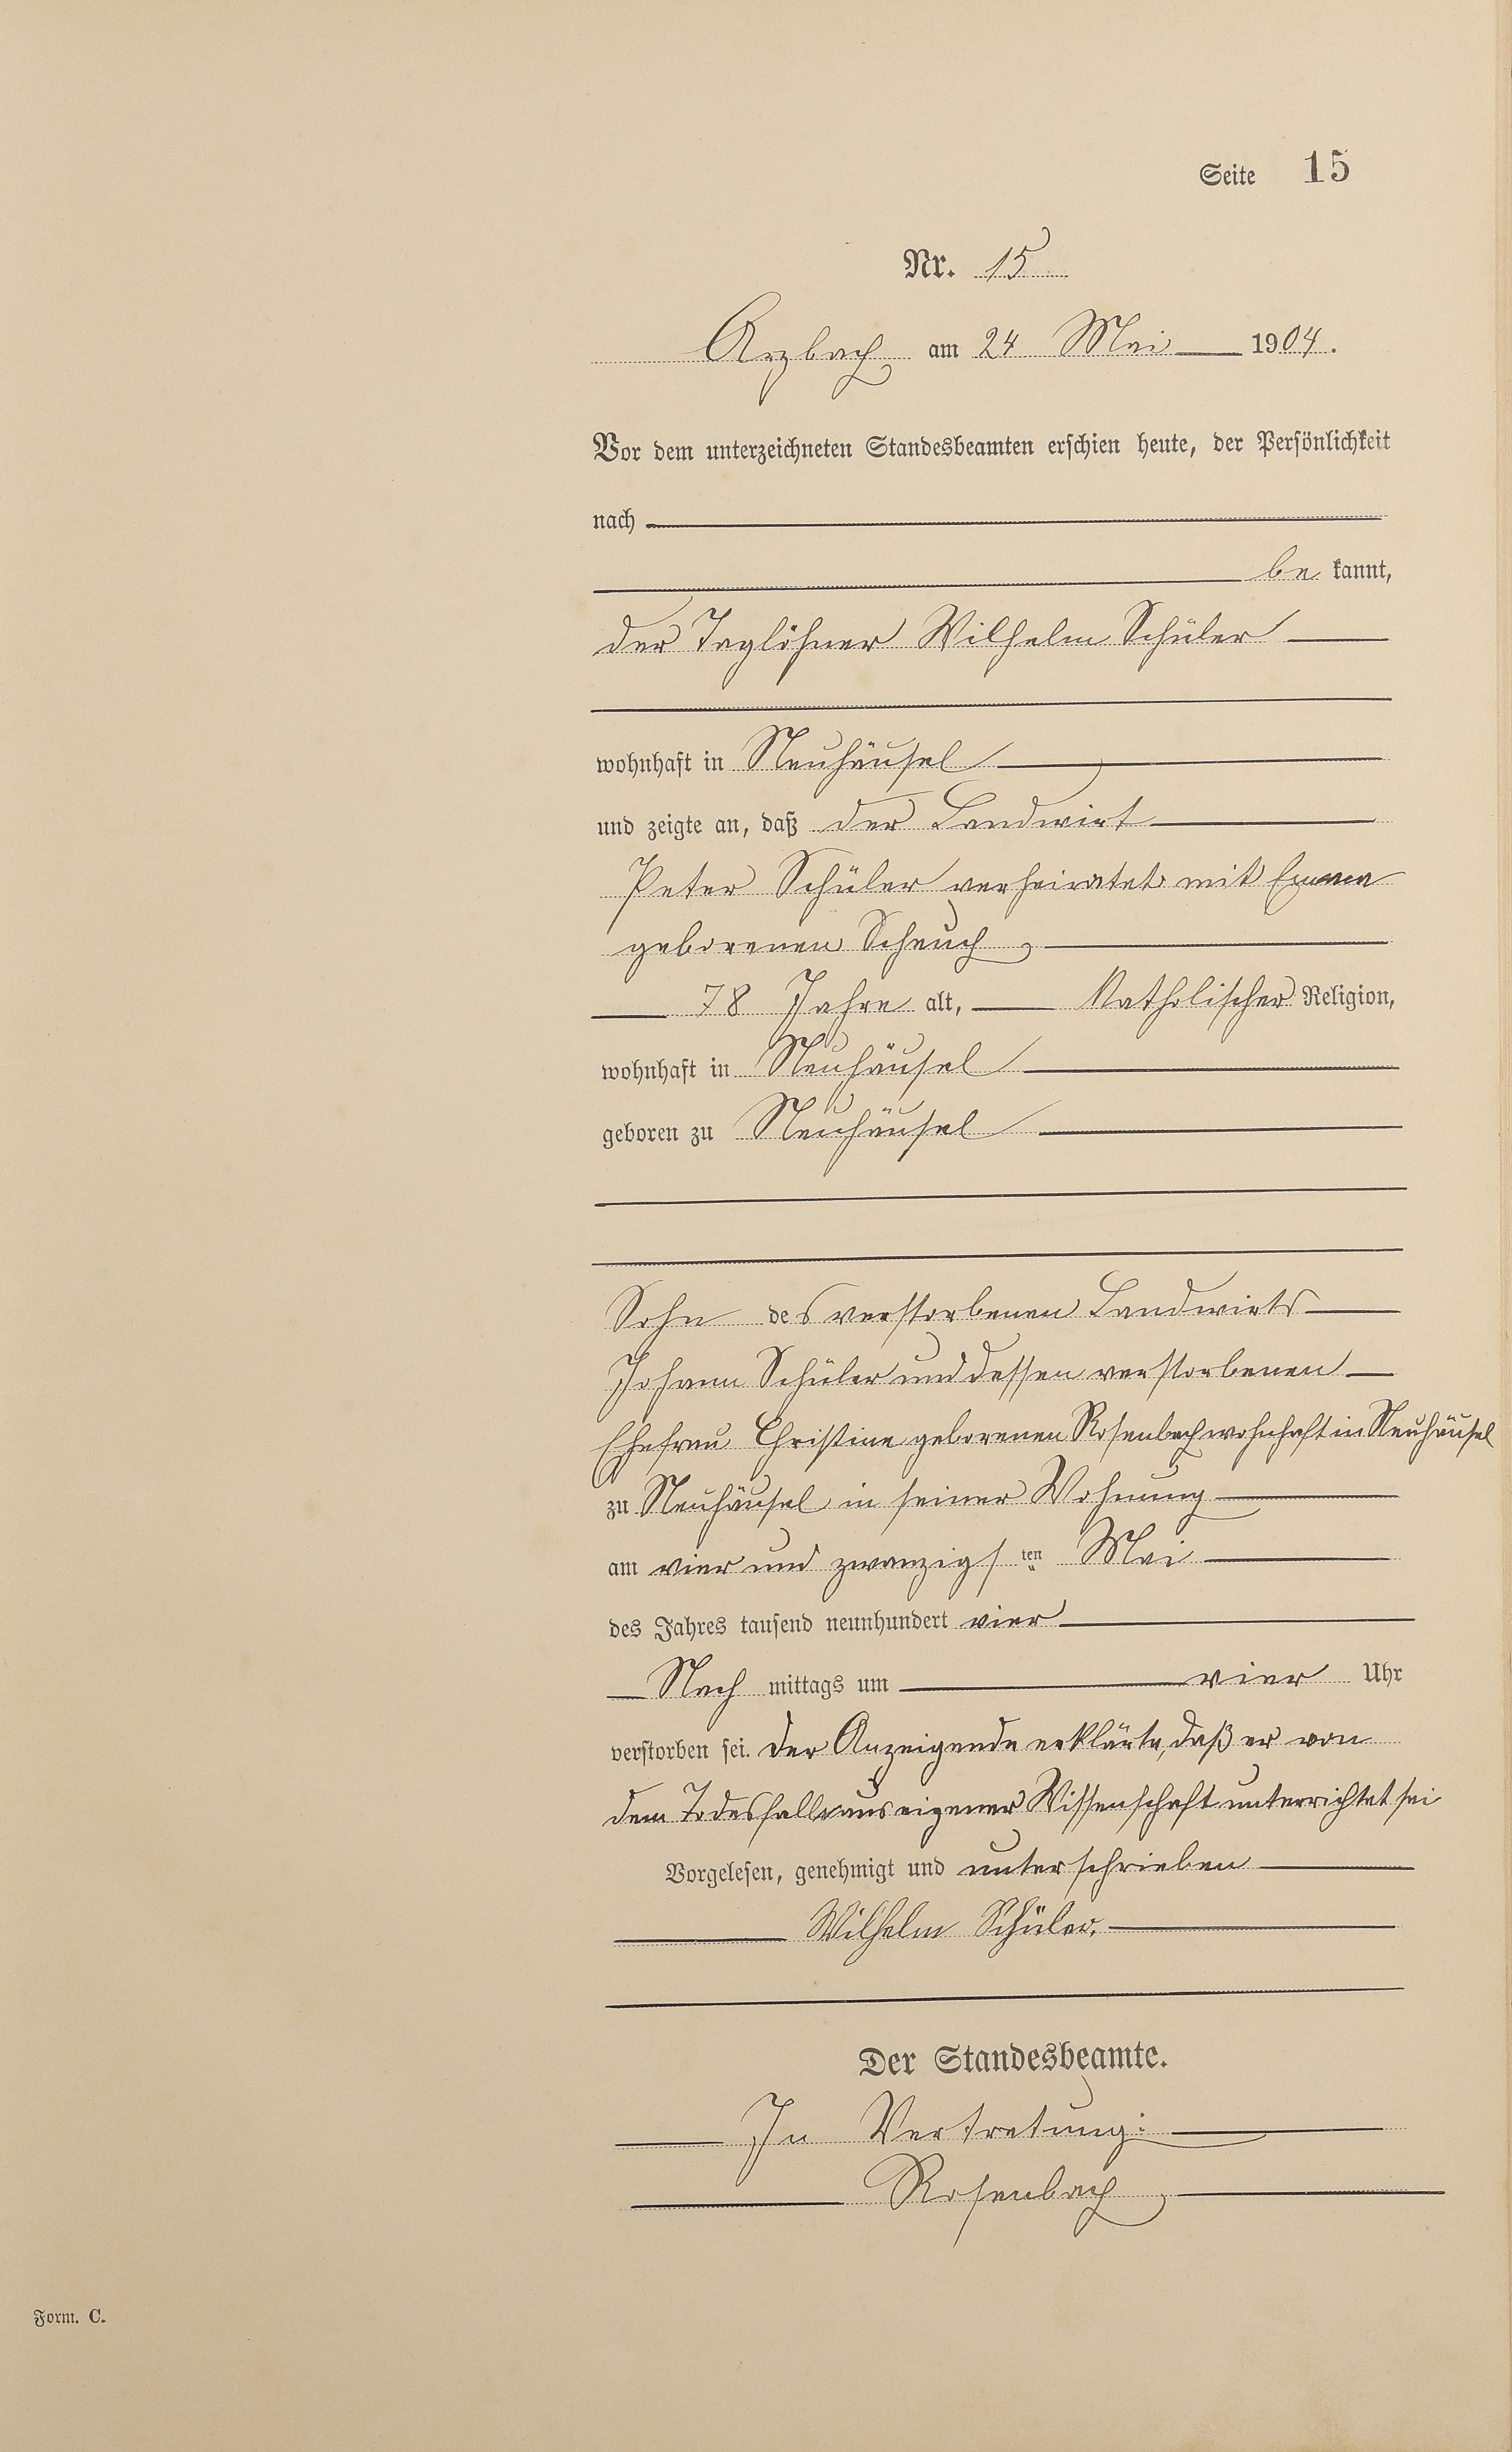 Seite 15
Nr. 15
Arzbach am 24 Mai 1904.
Vor dem unterzeichneten Standesbeamten erschien heute, der Persönlichkeit
nach
be kannt,
der Taglöhner Wilhelm Schüler
wohnhaft in Neuhäusel
und zeigte an, daß der Landwirt
Peter Schüler verheiratet mit Emma
geborenen Scheuch
78 Jahre alt, Katholischer Religion,
wohnhaft in Neuhäusel
geboren zu Neuhäusel
Sohn des verstorbenen Landwirts
Johann Schüler und dessen verstorbenen
Ehefrau Christine geborenen Rosenbach wohnhaft in Neuhäusel
zu Neuhäusel in seiner Wohnung
am vier und zwanzigsten Mai
des Jahres tausend neunhundert vier
Nach mittags um vier Uhr
verstorben sei. Der Anzeigende erklärte, daß er von
dem Todesfalle aus eigener Wissenschaft unterrichtet sei
Vorgelesen, genehmigt und unterschrieben
Wilhelm Schüler.
Der Standesbeamte.
In Vertretung:
Rosenbach
Form. C.